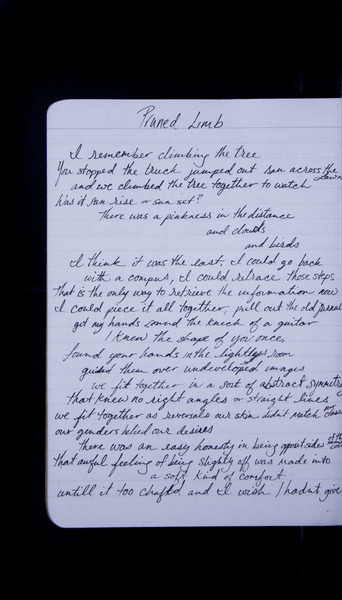 Pruned Limb
I remember climbing the tree
You stopped the truck jumped out ran across the lawn
and we climbed the tree together to watch
was it sun rise or sun set?
There was a pinkness in the distance
and clouds
and birds
I think it was the east, I could go back
with a compus, I could retrace those steps
That is the only way to retrieve the information now
I could piece it all together, pull out the old journal
get my hands round the neck of a guitar
I knew the shape of you once,
found your hands in the lightless room
guided them over undeveloped images
we fit together in a sort of abstract symmetry
that knew no right angles or straight lines
we fit together as reversals our skin didnt match nor
our genders belied our desires
there was an easy honesty in being opposit sides of the
That awful feeling of being slighty off was made into
a soft kind of comfort
untill it too chafed and I wish I hadnt give